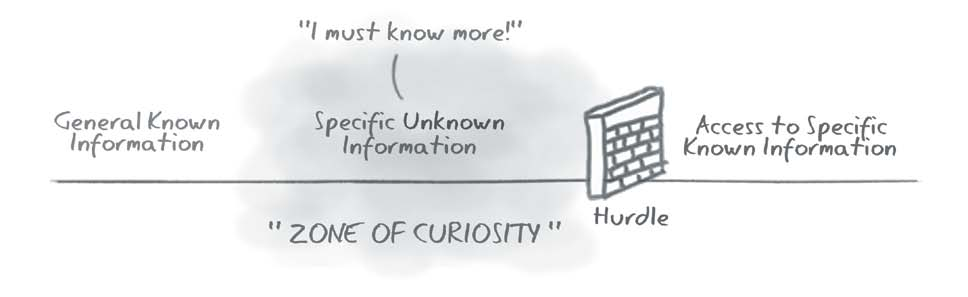 "I must know more!"
General Known
Information
Specific Unknown
Information
Access to Specific
Known Information
Hurdle
" ZONE OF CURIOSITY "